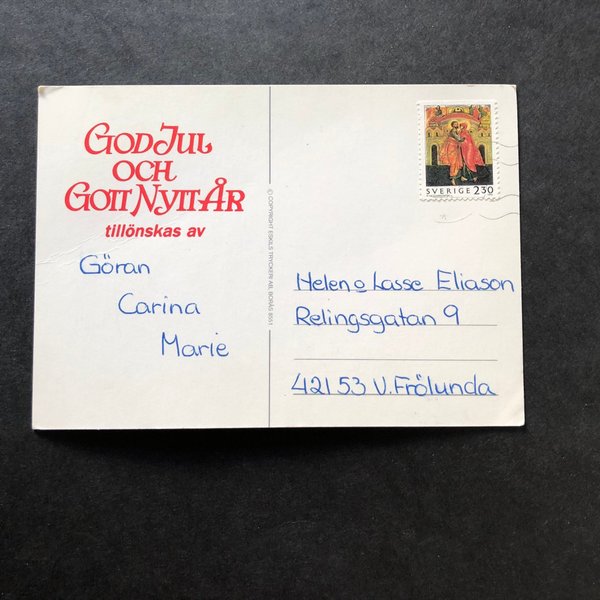 GOD JUL
OCH
GOTT NYTT ÅR
tillönskas av
Göran
Carina
Marie
© COPYRIGHT ESKILS TRYCKERI AB, BORÅS 8551
SVERIGE 230
Helen o Lasse Eliason
Relingsgatan 9
42153 V. Frölunda